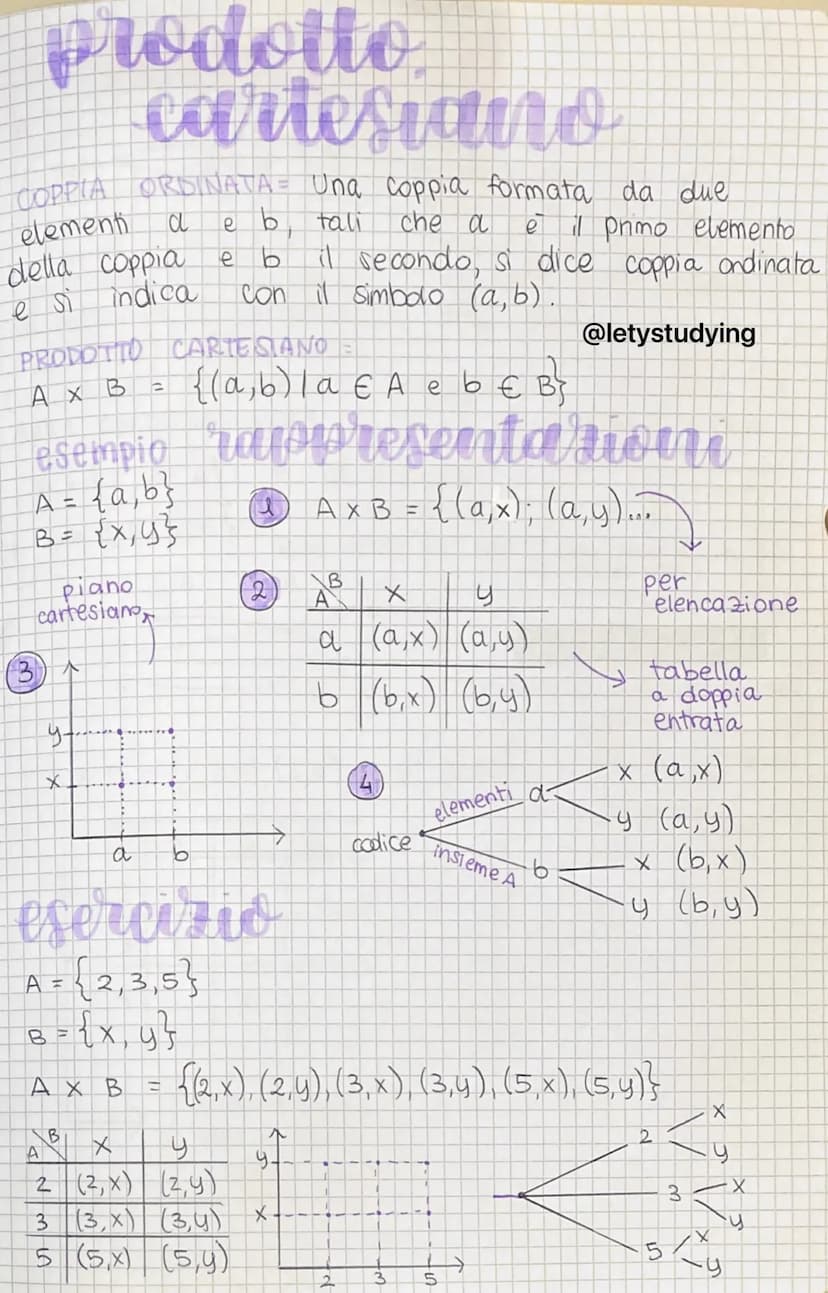 prodotto
cartesiano
COPPIA ORDINATA= Una coppia formata da due
elementi a e b, tali che a è il primo elemento
della coppia e b il secondo, si dice coppia ordinata
e si indica con il simbolo (a,b).
@letystudying
PRODOTTO CARTESIANO =
A x B = {(a,b) | a ∈ A e b ∈ B}
esempio rappresentazioni
A = {a,b}
B = {x,y}
1 A x B = {(a,x); (a,y)...
per
elencazione
2
A B x y
a (a,x) (a,y)
b (b,x) (b,y)
tabella
a doppia
entrata
piano
cartesiano
3
y
x
a b
4
codice
elementi
insieme A
a
x (a,x)
y (a,y)
b
x (b,x)
y (b,y)
esercizio
A = {2,3,5}
B = {x, y}
A x B = {(2,x), (2,y), (3,x), (3,y), (5,x), (5,y)}
A B x y
2 (2,x) (2,y)
3 (3,x) (3,y)
5 (5,x) (5,y)
y
x
2 3 5
2 x
y
3 x
y
5 x
y